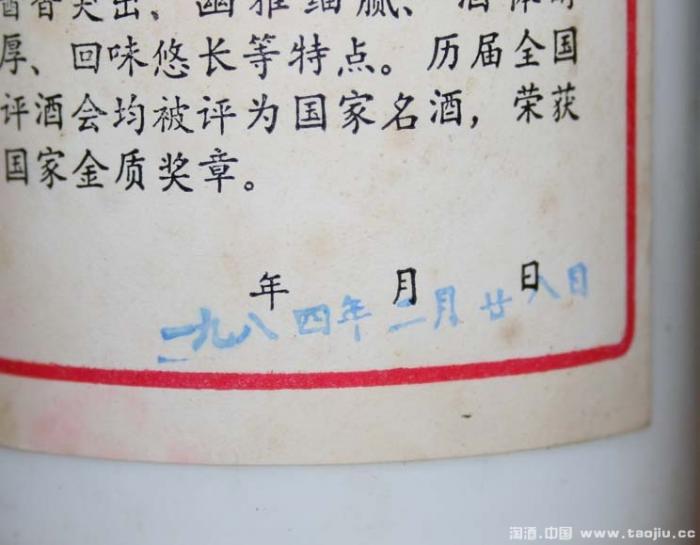 酱香突出、幽雅细腻、酒体醇
厚、回味悠长等特点。历届全国
评酒会均被评为国家名酒，荣获
国家金质奖章。
年 月 日
一九八四年二月廿八日
淘酒.中国 www.taojiu.cc